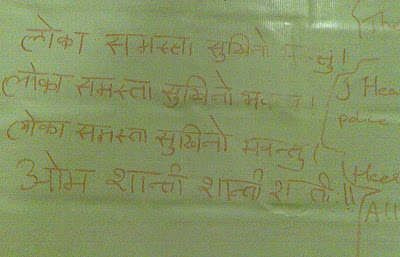 लोका समस्ता सुखिनो भवन्तुं।
लोका समस्ता सुखिनो !
लोका समस्ता सुखिनो भवन्तु।
ओम शान्ती शान्ती शान्ती॥
Heal
police
Heal
All